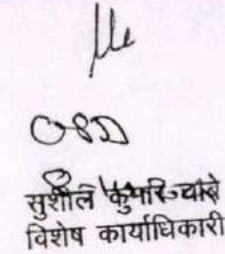 OSD
सुशील कुमार चौबे
विशेष कार्याधिकारी